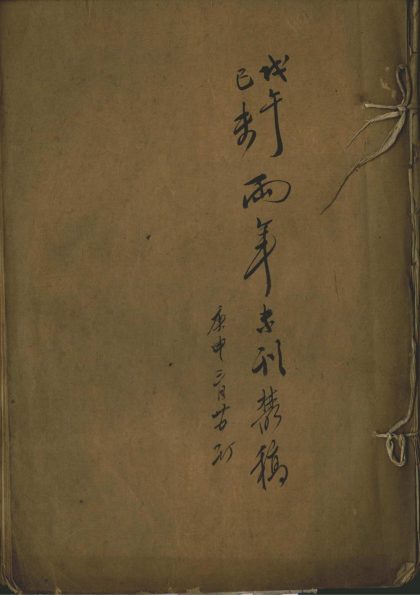 戊午
己未
兩年未刊叢稿
庚申三月廿五訂